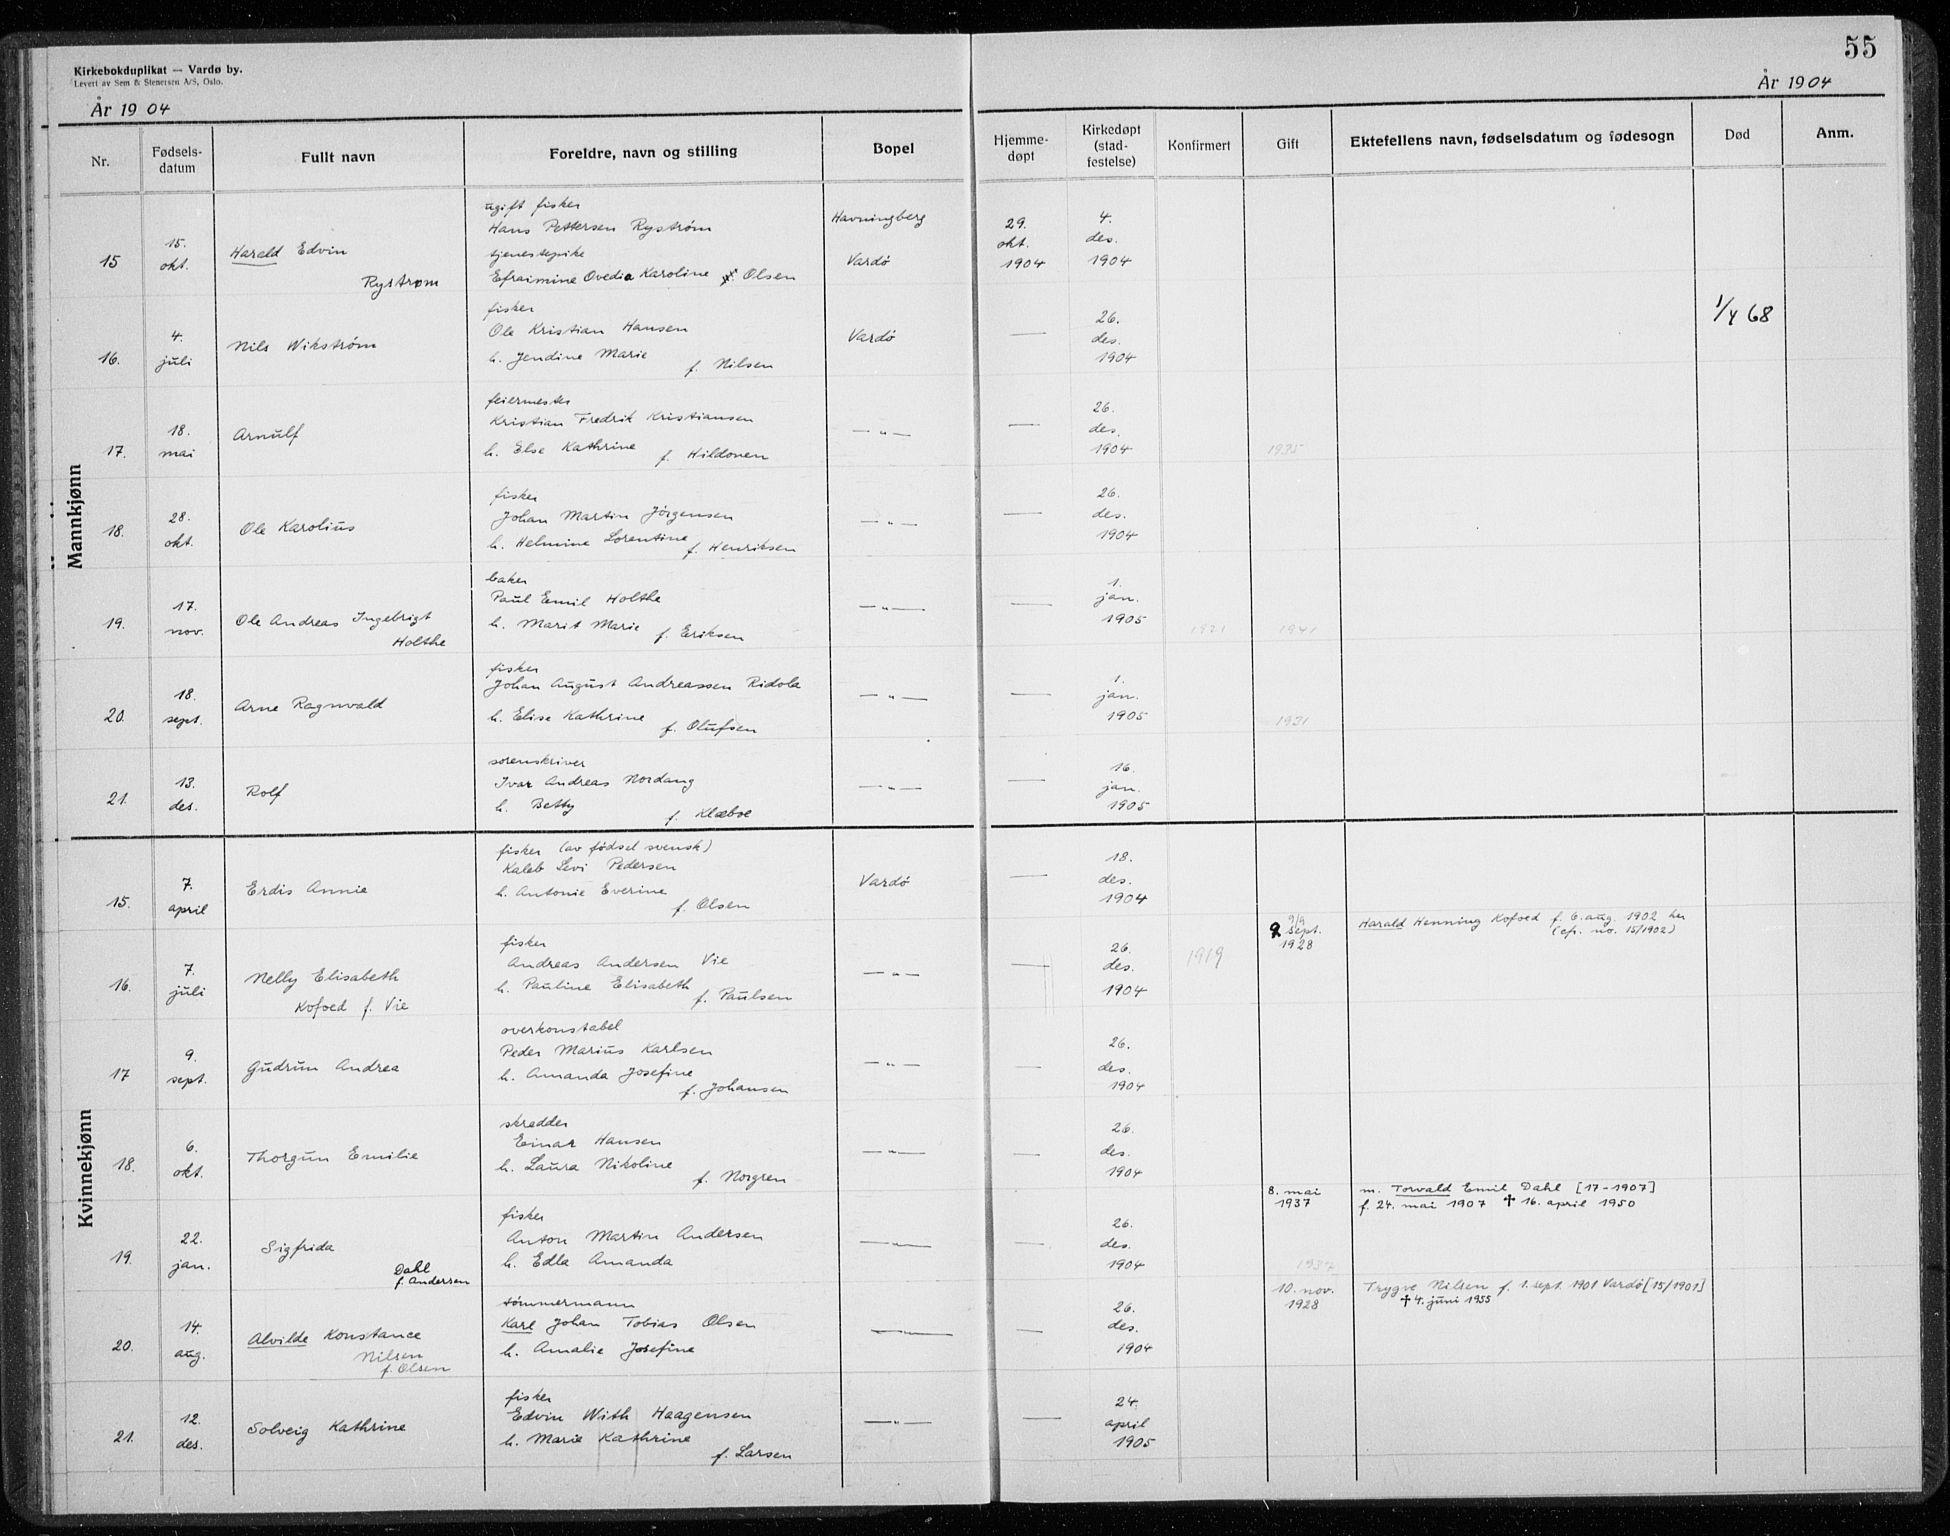 55
Kirkebokduplikat — Vardø by.
Levert av Sem & Stenersen A/S, Oslo.
År 1904
År 1904
Nr.
Fødsels-
datum
Fullt navn
Foreldre, navn og stilling
Bopel
Hjemme-
døpt
Kirkedøpt
(stad-
festelse)
Konfirmert
Gift
Ektefellens navn, fødselsdatum og fødesogn
Død
Anm.
Mannkjønn
15
15.
okt.
Harald Edvin
Rystrøm
ugift fisker
Hans Pettersen Rystrøm
tjenestepike
Efraimine Ovedia Karoline Olsen
Havningberg
Vardø
29.
okt.
1904
4.
des.
1904
16.
4.
juli
Nils Wikstrøm
fisker
Ole Kristian Hansen
h. Jendine Marie
f. Nilsen
Vardø
—
26.
des.
1904
1/4 68
17.
18.
mai
Arnulf
feiermester
Kristian Fredrik Kristiansen
h. Else Kathrine f. Hildonen
— " —
—
26.
des.
1904
1935
18.
28.
okt.
Ole Karolius
fisker
Johan Martin Jörgensen
h. Helmine Lorentine f. Henriksen
— " —
—
26.
des.
1904
19.
17.
nov.
Ole Andreas Ingebrigt
Holthe
baker
Paul Emil Holthe
h. Marit Marie f. Eriksen
— " —
—
1.
jan.
1905
1921
1941
20.
18.
sept.
Arne Ragnvald
fisker
Johan August Andreassen Ridola
h. Elise Kathrine
f. Olufsen
— " —
—
1.
jan.
1905
1931
21.
13.
des.
Rolf
sorenskriver
Ivar Andreas Nordang
h. Betty
f. Klæboe
— " —
—
16.
jan.
1905
Kvinnekjønn
15.
7.
april
Erdis Annie
fisker (av fødsel svensk)
Kaleb Levi Pedersen
h. Antonie Everine
f. Olsen
Vardø
—
18.
des.
1904
16.
7.
juli
Nelly Elisabeth
Kofoed f. Vie
fisker
Andreas Andersen Vie
h. Pauline Elisabeth
f. Paulsen
— " —
—
26.
des.
1904
1919
9/9
9 sept.
1928
Harald Henning Kofoed f. 6. aug. 1902 her
(cfr. no. 15/1902)
17
9.
sept.
Gudrun Andrea
overkonstabel
Peder Marius Karlsen
h. Amanda Josefine
f. Johansen
— " —
—
26.
des.
1904
18.
6.
okt.
Thorgun Emilie
skredder
Einar Hansen
h. Laura Nikoline
f. Norgren
— " —
—
26.
des.
1904
19.
22.
jan.
Sigfrida
Dahl
f. Andersen
fisker
Anton Martin Andersen
h. Edla Amanda
— " —
—
26.
des.
1904
8. mai
1937
1937
m. Torvald Emil Dahl [17-1907]
f. 24. mai 1907 ✝ 16. april 1950
20.
14.
aug.
Alvilde Konstance
Nilsen
f. Olsen
tømmermann
Karl Johan Tobias Olsen
h. Amalie Josefine
— " —
—
26.
des.
1904
10. nov.
1928
Trygve Nilsen f. 1. sept. 1901 Vardø [15/1901]
✝ 4. juni 1955
21.
12.
des.
Solveig Kathrine
fisker
Edvin With Haagensen
h. Marie Kathrine
f. Larsen
— " —
—
24.
april
1905